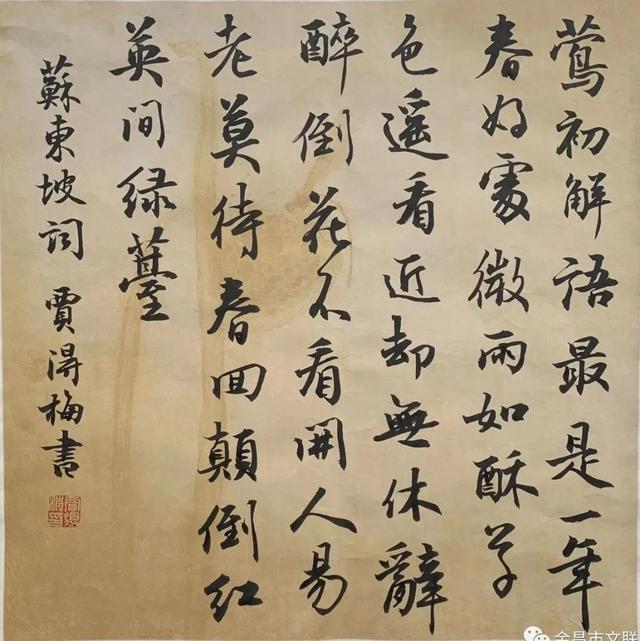 莺初解语最是一年
春好處微雨如酥草
色遥看近却無休辭
醉倒花不看開人易
老莫待春回顛倒红
英间绿薹
蘇東坡词 賈得梅書
金昌市文联